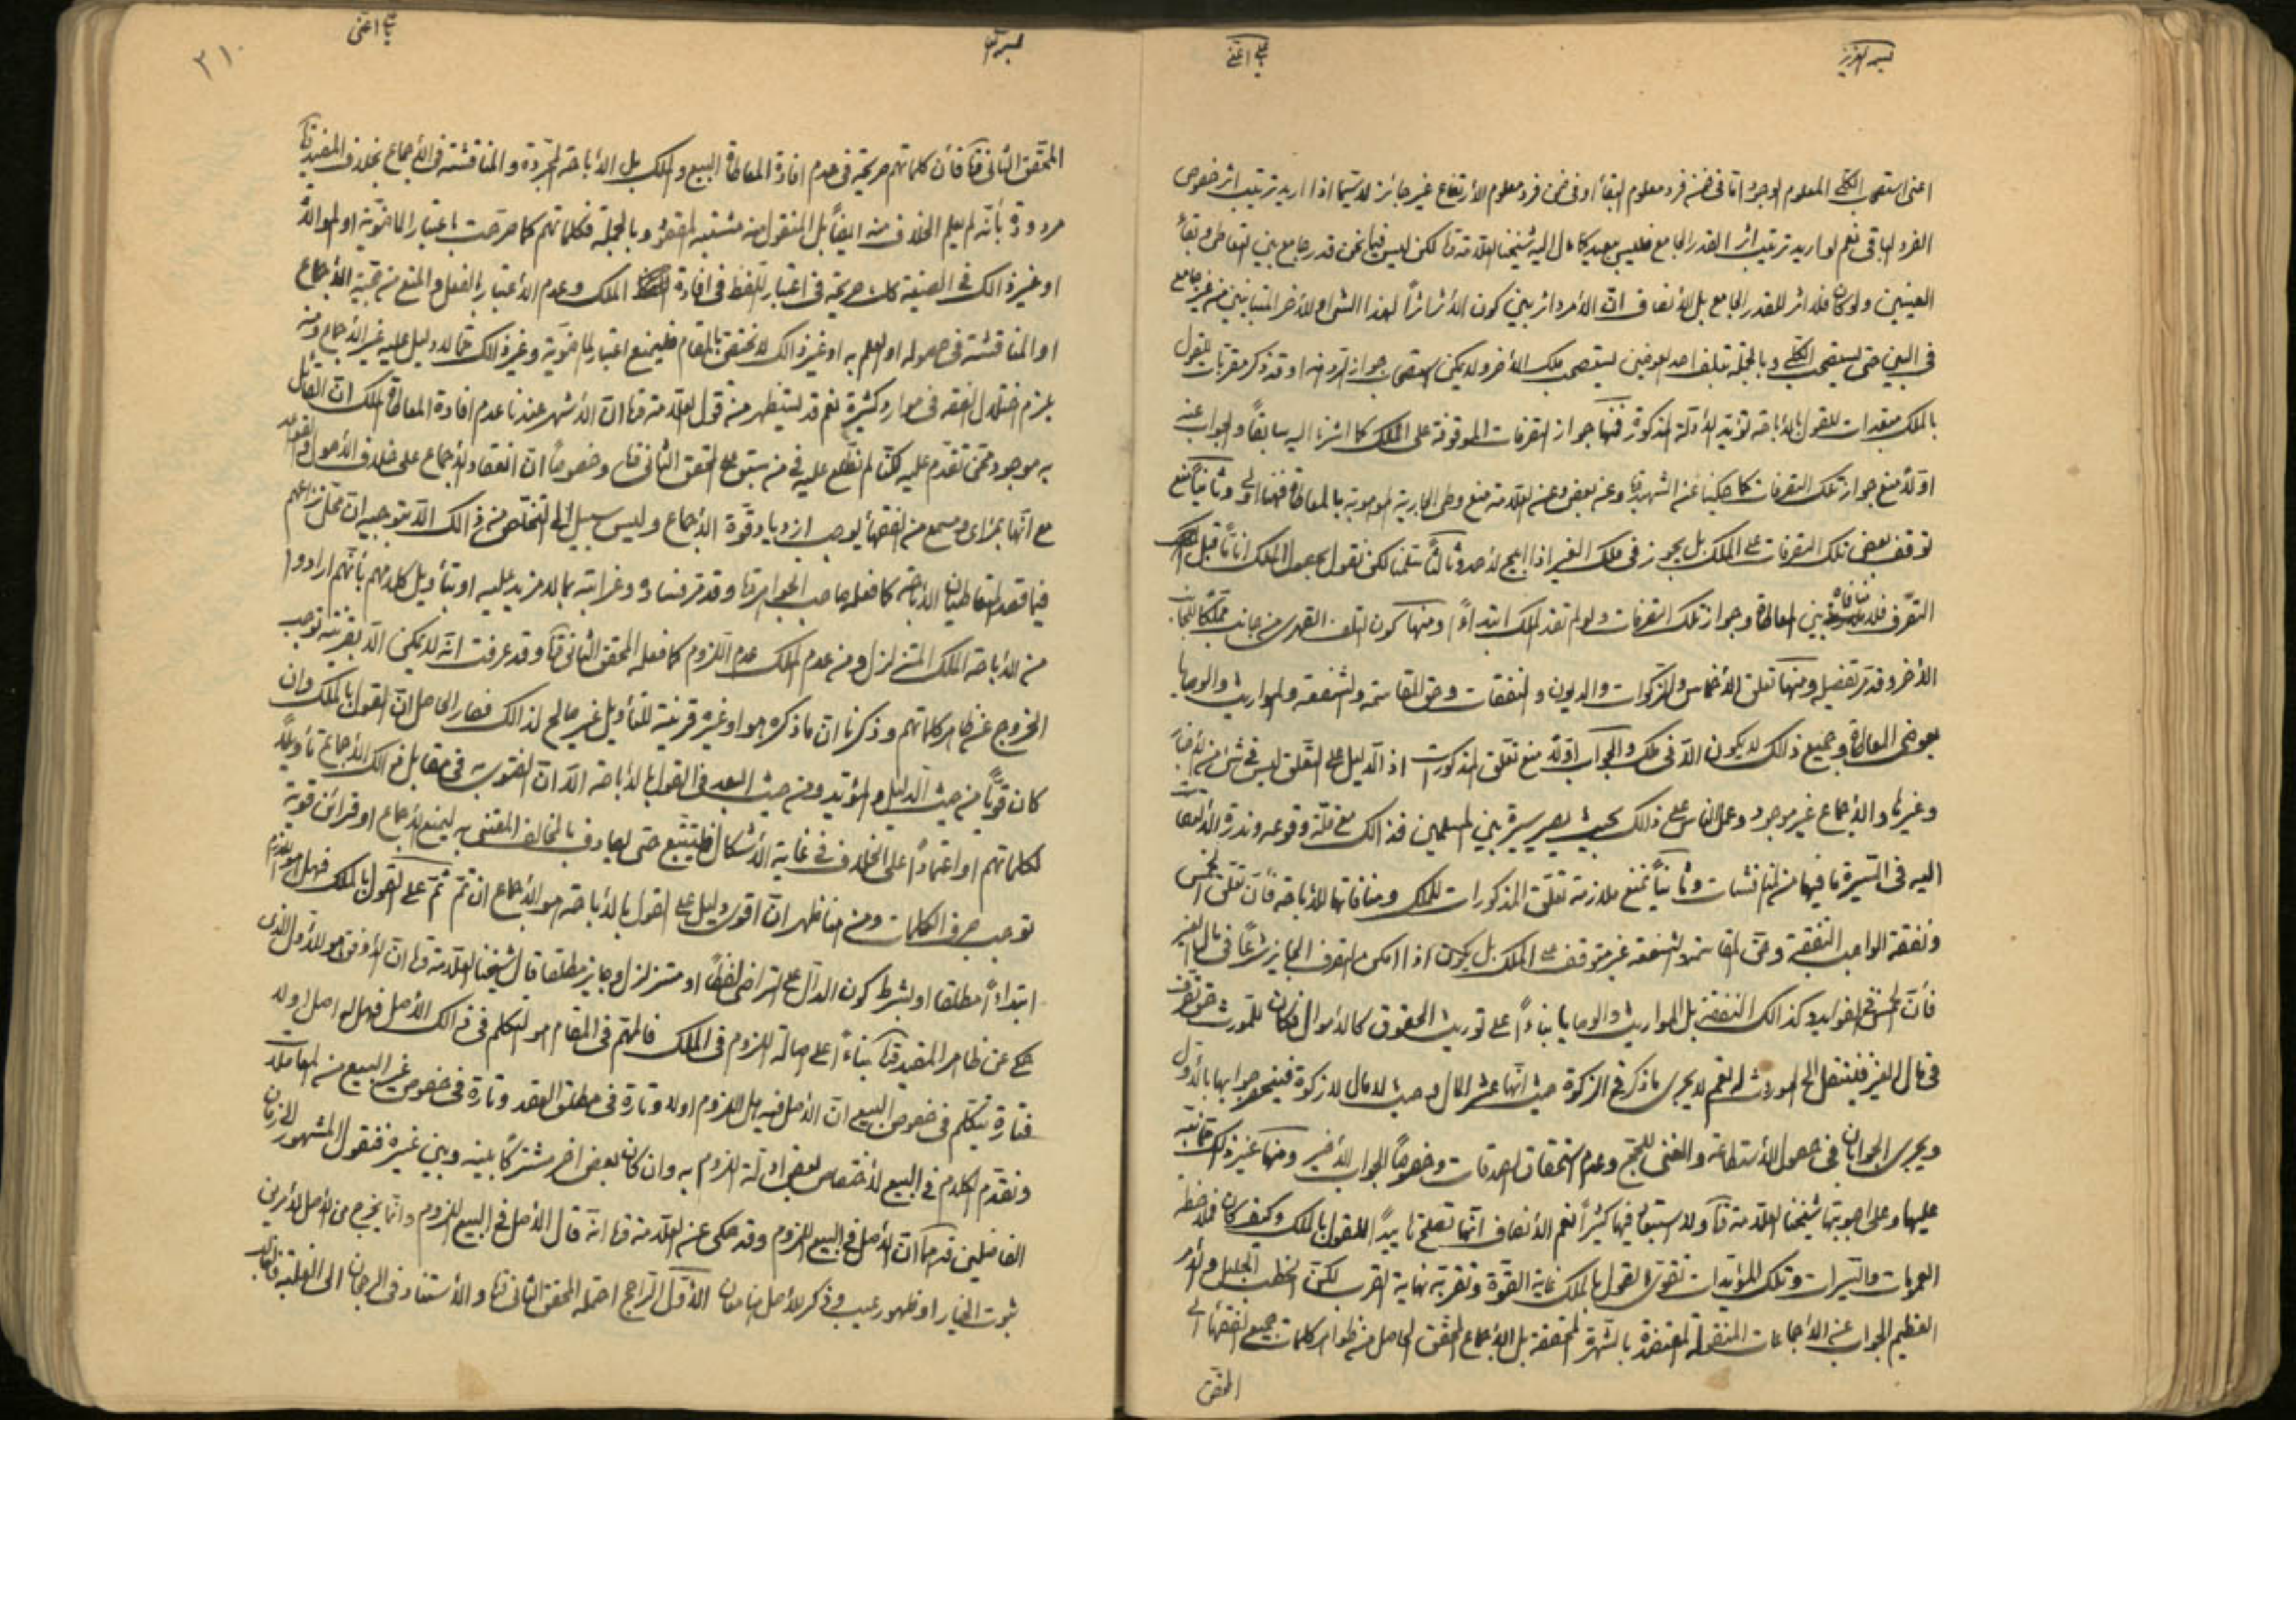 اعنى استصحاب الكلى المعلوم لوجوده اما فى ضمن فرد معلوم البقاء او فى ضمن فرد معلوم الارتفاع غير جائز لا سيما اذا اريد ترتيب اثر خصوص
الفرد الباقى نعم لو اريد ترتيب اثر القدر الجامع فليس ببعيد كما مال اليه شيخنا العلامة لكن ليس فيما نحن قدر جامع بين التعاطى وبقاء
العينين ولو كان فلا اثر للقدر الجامع بل الانصاف ان الامر دائر بين كون الأثر اثرا لهذا الشىء او للاخر المتباينين من غير جامع
فى البين حتى يستصحب الكلى وبالجملة بتلف احد العوضين يستصحب ملك الاخر ولا يمكن استصحاب جواز الرد فيه وقد ذكر مقربات للقول
بالملك مبعدات للقول بالاباحة تؤيد الادلة المذكورة فمنها جواز التصرفات الموقوفة على الملك كما اشرنا اليه سابقا والجواب عنه
اولا منع جواز تلك التصرفات كما حكينا عن الشهيد وعن بعض وعن العلامة منع وطى الجارية الموهوبة بالمعاطاة فهنا اولى وثانيا منع
توقف بعض تلك التصرفات على الملك بل يجوز فى ملك الغير اذا ابيح لاحد وثالثا سلمنا لكن نقول بحصول الملك اناما قبل
التصرف فلا منافاة بين المعاطاة وجواز تلك التصرفات ولو لم تفد الملك ابتداء ومنها كون التلف القهرى من جانب مملكا للجانب
الاخر وقد مر تفصيله ومنها تعلق الاخماس والزكوات والديون والنفقات وحق المقاسمة والشفعة والمواريث والوصايا
بعوضى المعاطاة وجميع ذلك لا يكون الا فى ملك والجواب اولا منع تعلق المذكورات اذ الدليل على التعلق ليس فى شىء من الاخبار
وغيرها والاجماع غير موجود وعمل الناس على ذلك بحيث يصير سيرة بين المسلمين فذالك مع قلة وقوعه وندرة الالتفات
اليه فى السيرة ما فيها من المناقشات وثانيا نمنع ملازمة تعلق المذكورات للملك ومنافاتها للاباحة فان تعلق الخمس
ونفقة الواجب النفقة وحق المقاسمة والشفعة غير متوقف على الملك بل يكون اذا امكن التصرف الجايز شرعا فى مال الغير
فان الخمس فى الفوايد وكذالك النفقة بل المواريث والوصايا بناء على توريث الحقوق كالاموال فكان للمورث حق تصرف
فى مال الغير فينتقل الى الوارث نعم لا يجرى ما ذكر فى الزكوة حيث انها عشر المال وحيث لا مال لا زكوة فينحصر جوابها بالاول
ويجرى الجوابان فى حصول الاستطاعة والغنى للحج وعدم استحقاق الصدقات وخصوصا الجواب الاخير ومنها غير ذلك
عليها وعلى اجوبتها شيخنا العلامة ولا استبعاد فيها كثيرا نعم الانصاف انها تصلح تاييدا للقول بالملك وكيف كان فملاحظة
العمومات والسيرات وتلك المؤيدات تقوى القول بالملك غاية القوة وتقربه نهاية القرب لكن الخطب الجليل والامر
العظيم الجواب عن الاجماعات المنقولة المعتضدة بالشهرة المحققة بل الاجماع المحقق الحاصل من ظواهر كلمات جميع الفقهاء الى
المحقق
على اغنى
٢١٠
المحقق الثانى فان كلماتهم صريحة فى عدم افادة المعاطاة البيع والملك بل الاباحة المجردة والمناقشة فى الاجماع بخلاف المفيد
مردودة بانه لم يعلم الخلاف منه ايضا بل المنقول منه مشتبه المقصود وبالجملة فكلماتهم كما صرحت باعتبار الماضوية او الموالاة
او غير ذالك فى الصيغة كانت صريحة فى اعتبار اللفظ فى افادة الملك وعدم الاعتبار بالفعل والمنع من حجية الاجماع
او المناقشة فى حصوله او العلم به او غير ذالك لا يختص بالمقام فليمنع اعتبار الماضوية وغير ذلك مما لا دليل عليه غير الاجماع ومنه
يلزم اختلال الفقه فى موارد كثيرة نعم قد يستظهر من قول العلامة ان الاشهر عندنا عدم افادة المعاطاة الملك ان القائل
به موجود ممن تقدم عليه لكنا لم نطلع عليه فى من سبق على المحقق الثانى وخصوصا ان انعقاد الاجماع على خلاف الاصول والقواعد
مع انها بمرأى ومسمع من الفقهاء يوجب ازدياد قوة الاجماع وليس سبيل الى التخلص من ذالك الا بتوجيه ان محل نزاعهم
فيما قصد المتعاطيان الاباحة كما فعله صاحب الجواهر وقد مر فساده وغرابته بما لا مزيد عليه او بتأويل كلامهم بأنهم ارادوا
من الاباحة الملك المتزلزل ومن عدم الملك عدم اللزوم كما فعله المحقق الثانى وقد عرفت انه لا يمكن الا بقرينة توجب
الخروج عن ظاهر كلماتهم وذكرنا ان ما ذكره هو او غيره قرينة للتأويل غير صالح لذالك فصار الحاصل ان القول بالملك وان
كان قويا من حيث الدليل والمؤيد ومن حيث البعد فى القول بالاباحة الا ان الفتوى به فى مقابل ذالك الاجماع تأويلا
لكلماتهم او اعتمادا على الخلاف فى غاية الاشكال فليتتبع حتى يصادف بالمخالف المعتنى به ليمنع الاجماع او قرائن قوية
توجب صرف الكلمات ومن هنا ظهر ان اقوى دليل على القول بالاباحة هو الاجماع ان تم ثم على القول بالملك فهل هو لازم
ابتداء مطلقا او بشرط كون الدال على التراضى لفظا او متزلزل وجايز مطلقا قال شيخنا العلامة ان الاوفق هو الاول الذى
حكى عن ظاهر المفيد بناء على اصالة اللزوم فى الملك فالمهم فى المقام هو التكلم فى ذالك الأصل فهل له اصل او لا
فتارة يتكلم فى خصوص البيع ان الاصل فيه هل اللزوم او لا وتارة فى مطلق العقد وتارة فى خصوص غير البيع من المعاملات
ونقدم الكلام فى البيع لاختصاص بعض ادلة اللزوم به وان كان بعض اخر مشتركا بينه وبين غيره فنقول المشهور الى زمان
الفاضلين ان الاصل فى البيع اللزوم وقد حكى عن العلامة انه قال الاصل فى البيع اللزوم وانما يخرج من الاصل لامرين
ثبوت الخيار او ظهور عيب وذكر للأصل هنا معان الأول الراجح احتمله المحقق الثانى والاستناد فى الرجحان الى الغلبة